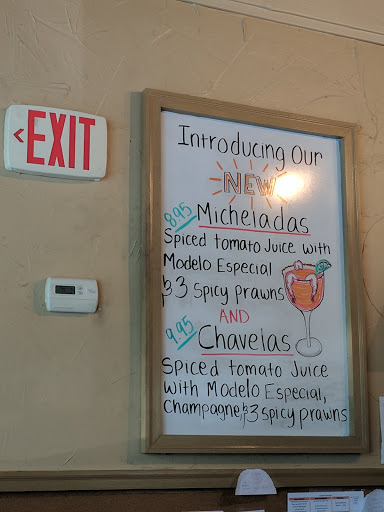 EXIT
Introducing Our
NEW
8.95 Micheladas
Spiced tomato Juice with
Modelo Especial
& 3 spicy prawns
AND
9.95 Chavelas
Spiced tomato Juice
with Modelo Especial,
Champagne, & 3 spicy prawns